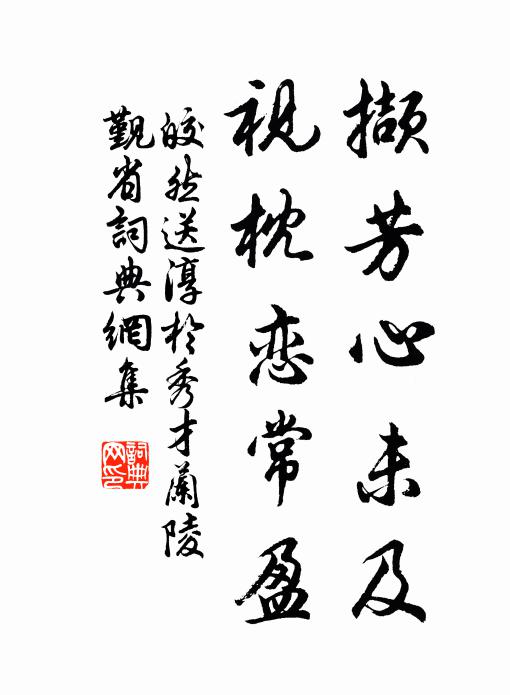 擷芳心未及
視枕恋常盈
皎然送淳於秀才蘭陵
覲省詞典網集
詞典
网印